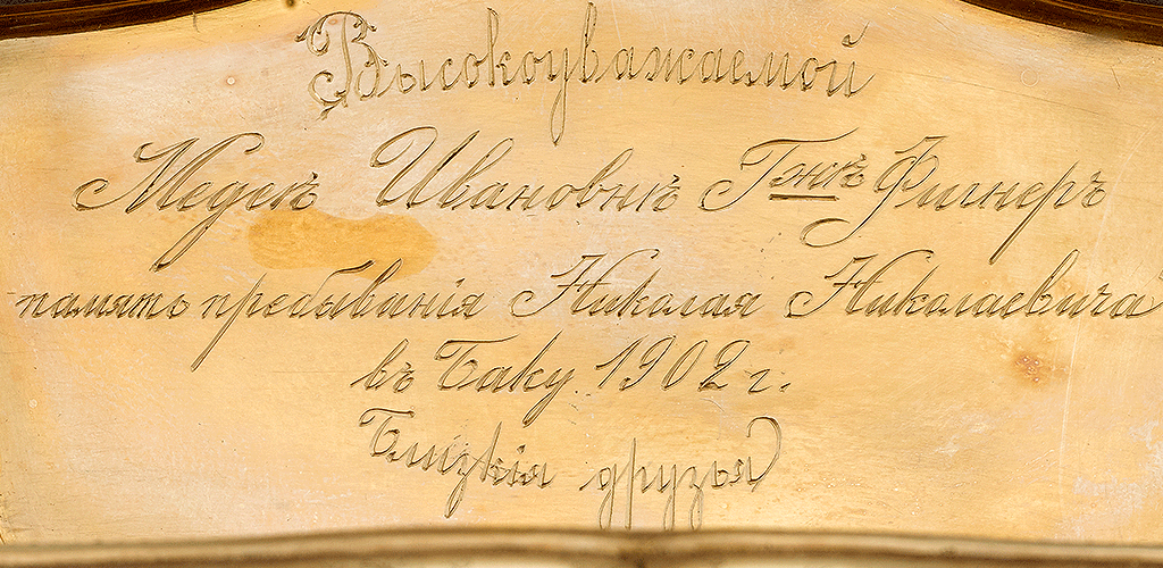 Высокоуважаемой
Медеѣ Ивановнѣ Гжѣ Фигнеръ
память пребыванія Николая Николаевича
въ Баку 1902 г.
Близкія друзья